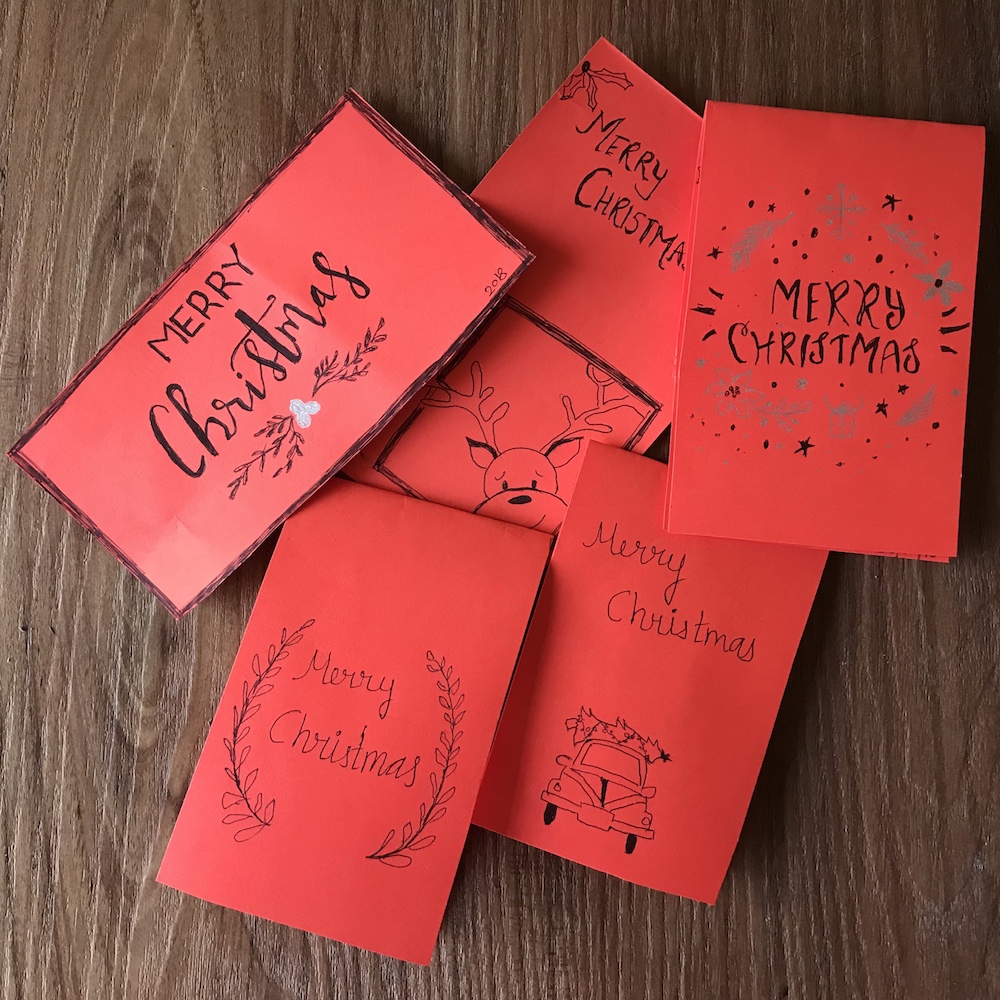 MERRY
Christmas
2018
MERRY
CHRISTMAS
MERRY
CHRISTMAS
Merry
Christmas
Merry
Christmas